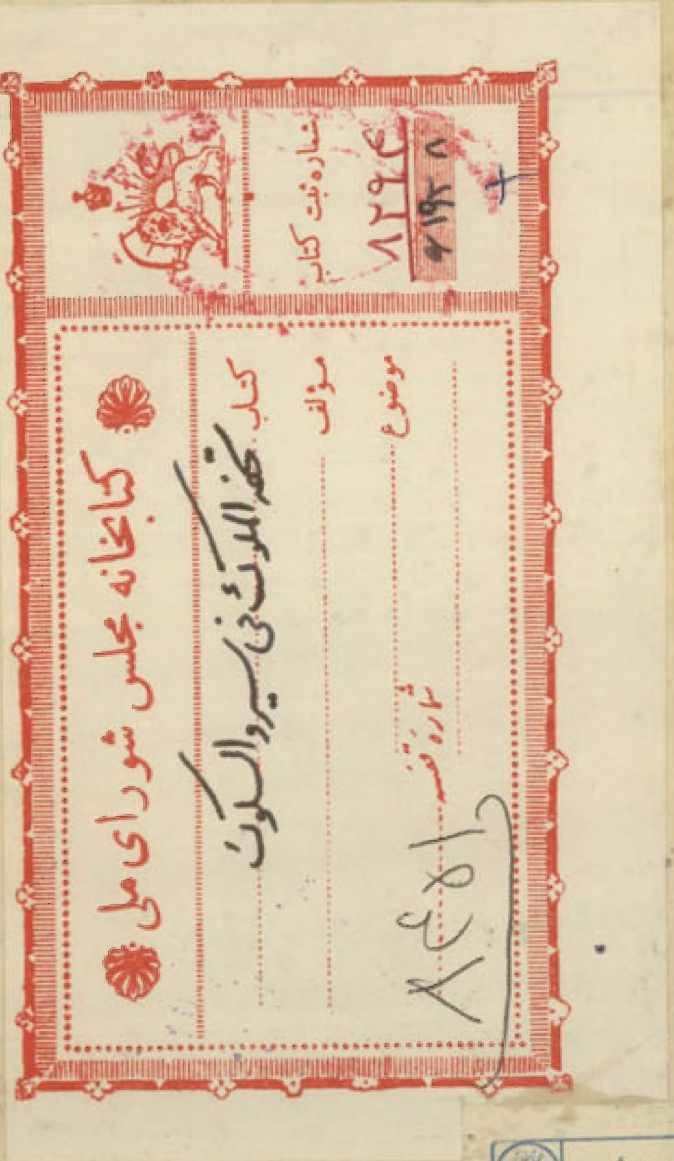 کتابخانه مجلس شورای ملی
کتاب تحفه الملوک فی سیر و السلوک
مؤلف
موضوع
شماره قفسه
۸۴۵۱
شماره ثبت کتاب